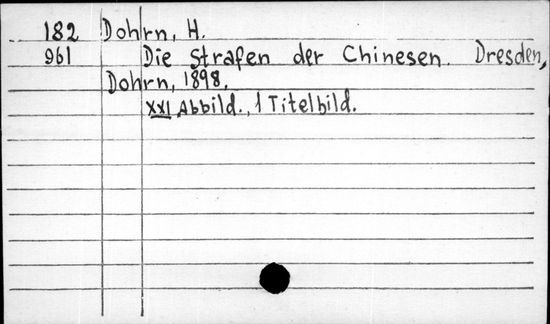 182 Dohrn, H.
961 Die Strafen der Chinesen. Dresden,
Dohrn, 1898.
XXI Abbild., 1 Titelbild.